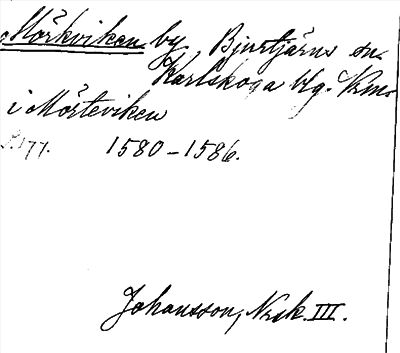 Mörkviken by Bjurtjärns sn.
Karlskoga blg. Vrm.
i Mörteviken
S. 177. 1580-1586.
Johansson, Norsk. III.